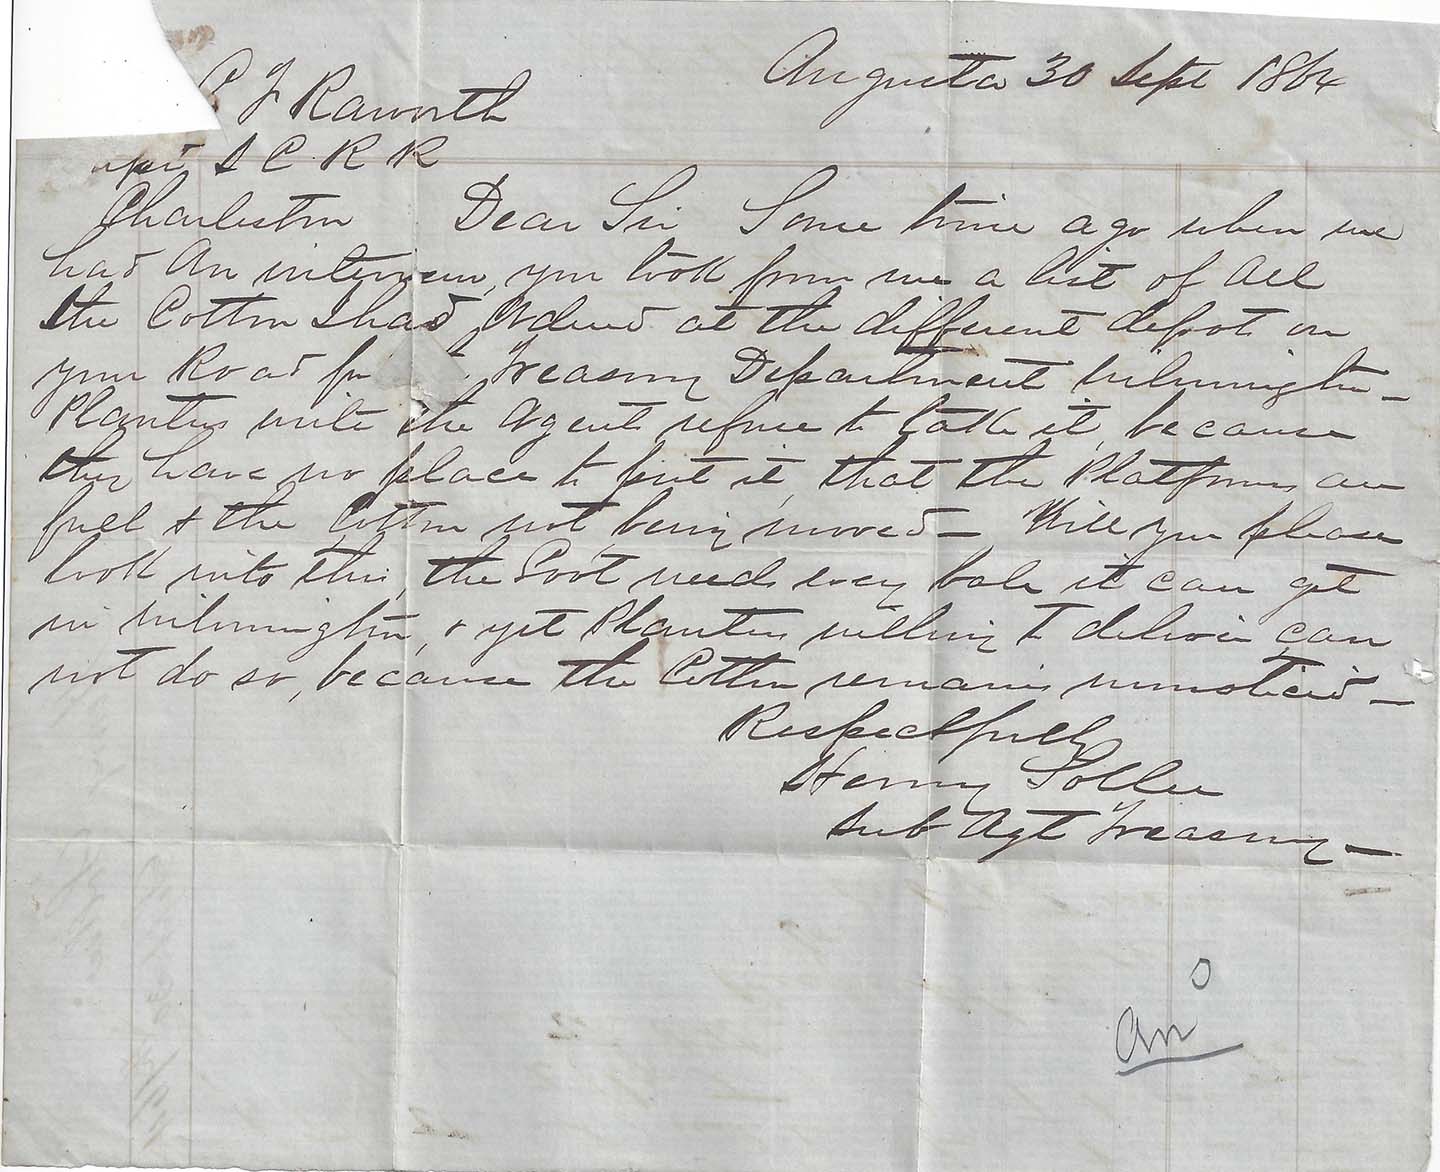 Augusta 30 Sept 1864
P J Raworth
S C R R
Charleston Dear Sir Some time ago when we
had An interview, you took from me a list of All
the Cotton I had Ordered at the different depot on
your Road for Treasury Department Wilmington_
Planters write the Agent refuse to take it, because
they have no place to put it, that the Platforms are
full & the Cotton not being moved_ Will you please
look into this, the Govt needs every bale it can get
in Wilmington, & yet Planters willing to deliver can
not do so, because the Cotton remains
Respectfully
Henry Sollee
Sub Agt Treasury_